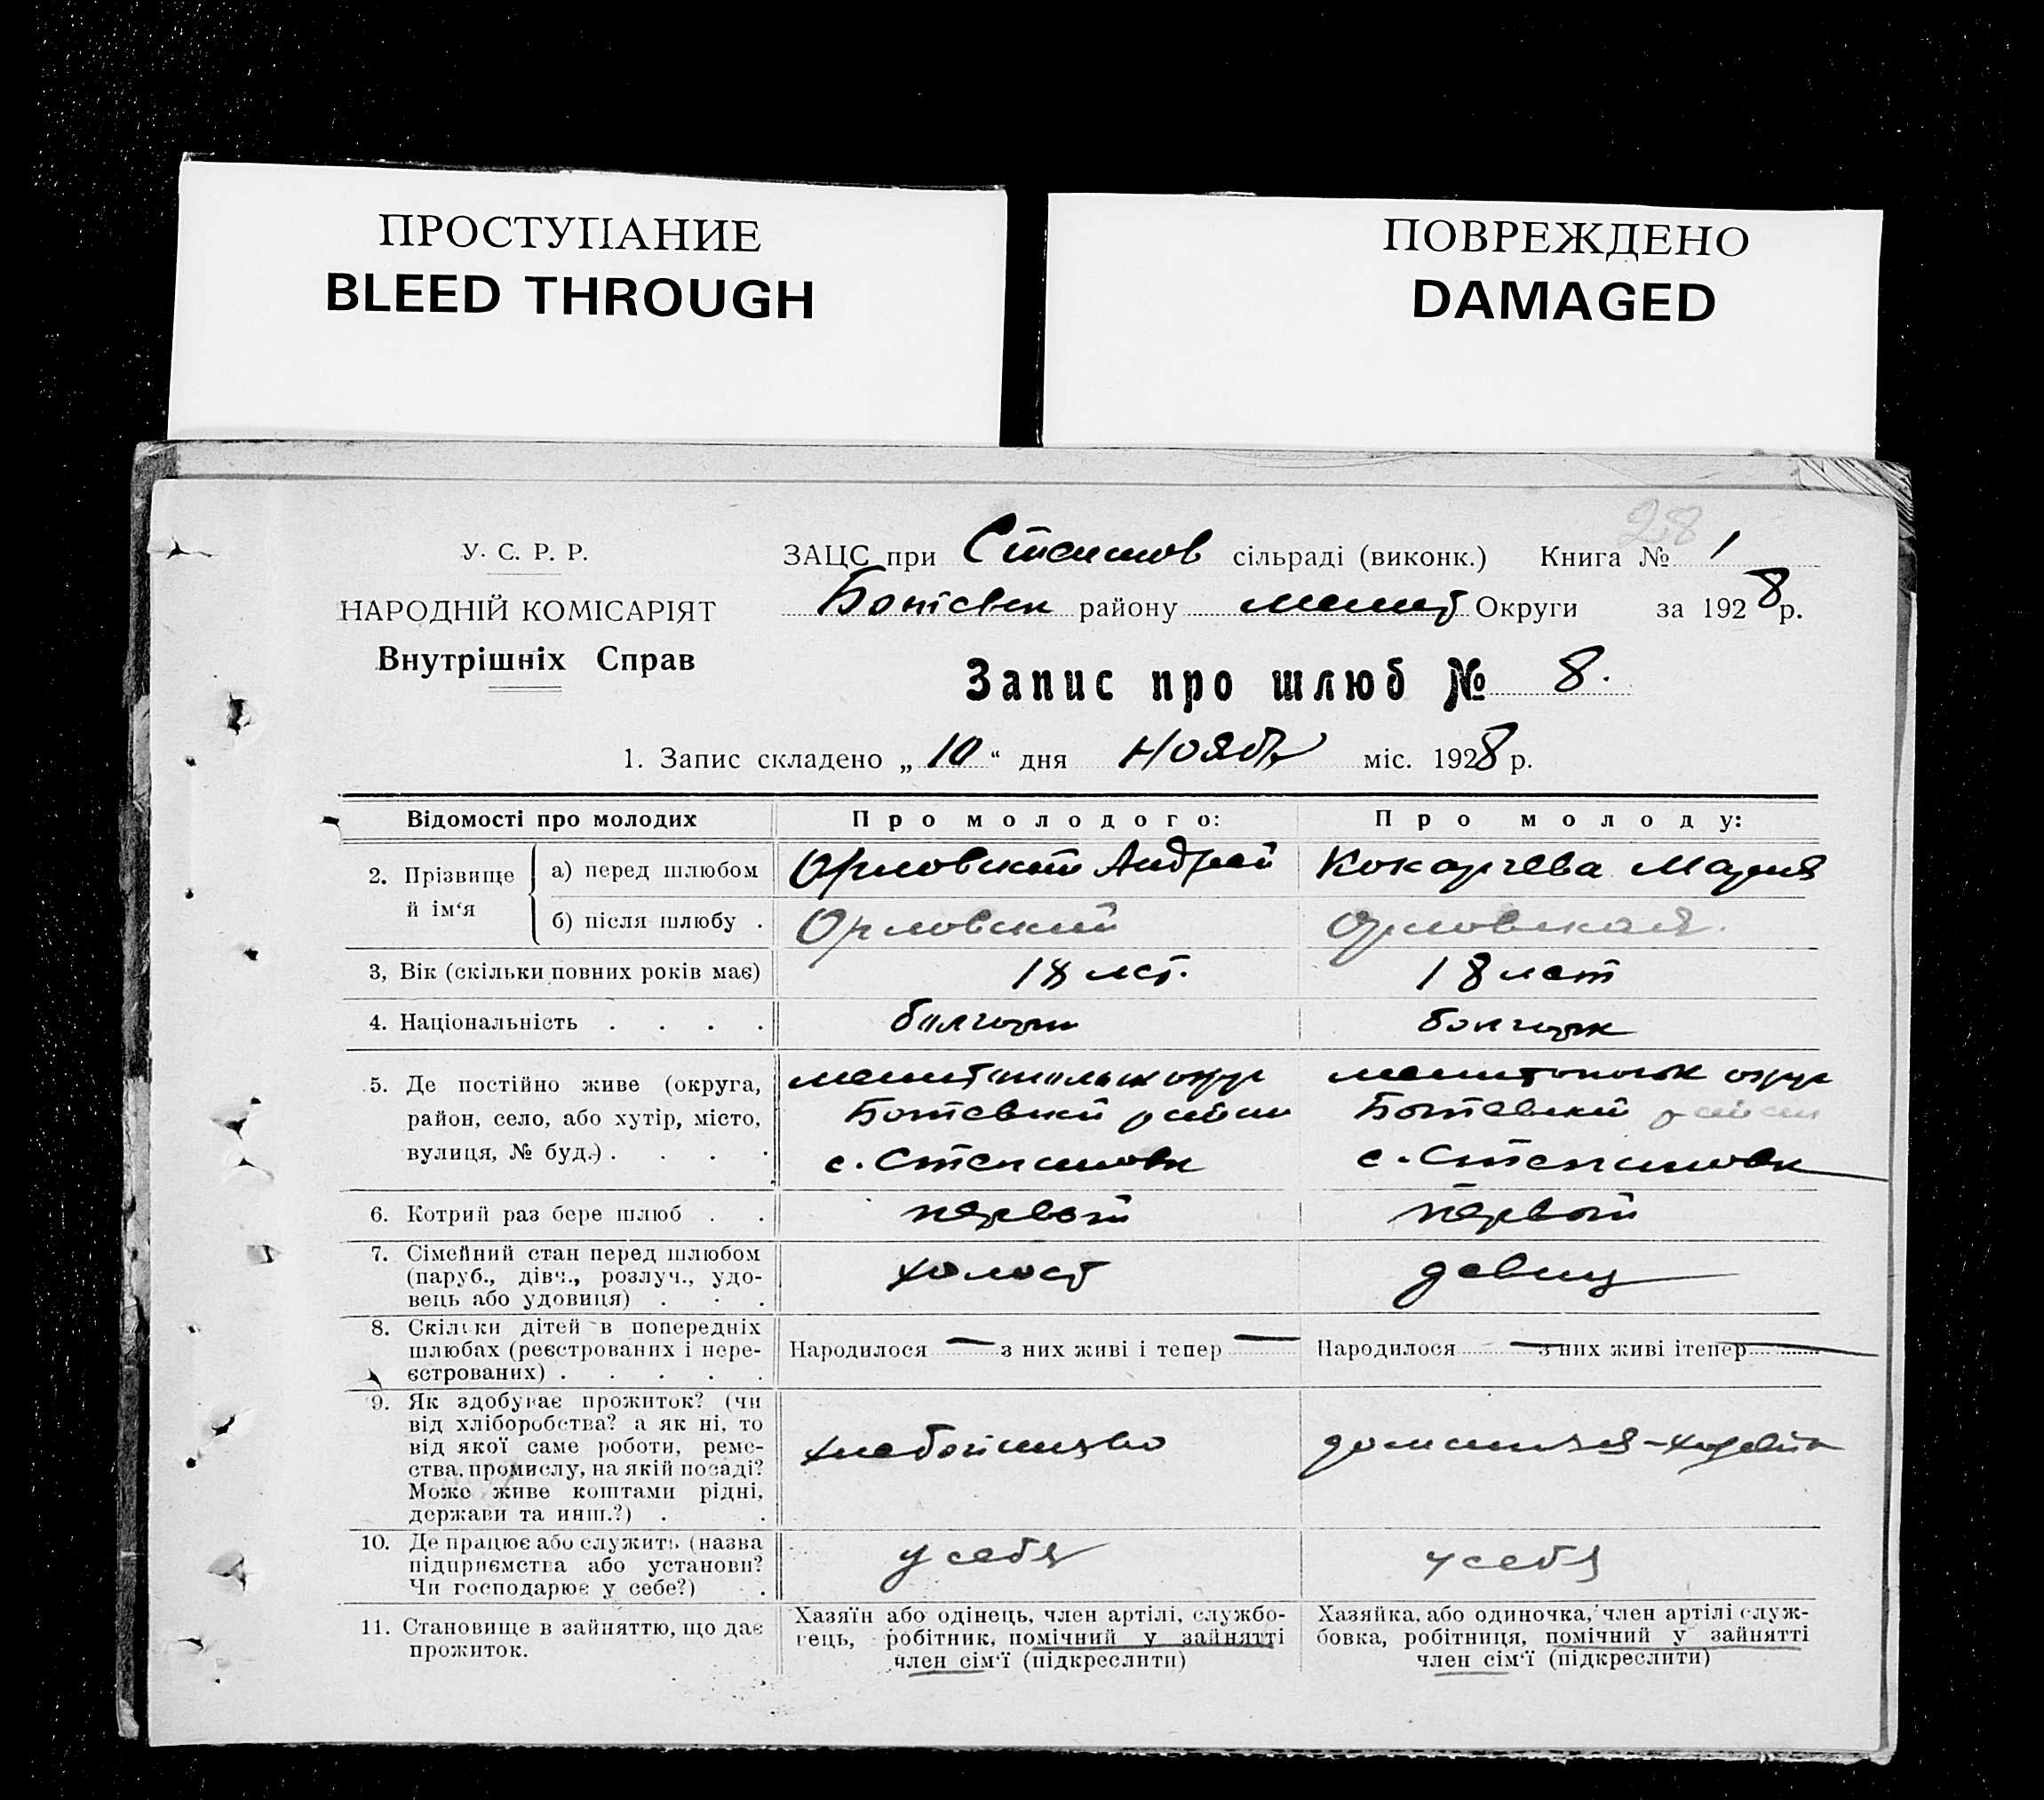 ПРОСТУПАНИЕ
BLEED THROUGH
ПОВРЕЖДЕНО
DAMAGED
28
У. С. Р. Р.
НАРОДНІЙ КОМІСАРІЯТ
Внутрішніх Справ
ЗАЦС при Степанов сільраді (виконк.) Книга № 1
Ботієвск району Мелит Округи за 1928 р.
Запис про шлюб № 8.
1. Запис складено „ 10 “ дня Ноябр міс. 1928 р.
Відомості про молодих Про молодого: Про молоду:
2. Прізвище й ім‘я
а) перед шлюбом Орловский Андрей Кокарчева Мария
б) після шлюбу . Орловский Орловская.
3, Вік (скільки повних років має) 18 лет. 18 лет
4. Національність . . . . болгари болгарк
5. Де постійно живе (округа,
район, село, або хутір, місто,
вулиця, № буд.) . . . .
Мелитопольск округ
Ботевский район
с. Степановк
Мелитопольск округ
Ботевский район
с. Степановк
6. Котрий раз бере шлюб . . первый первый
7. Сімейний стан перед шлюбом
(паруб., дівч., розлуч., удо-
вець або удовиця) . . .
холост девиц
8. Скільки дітей в попередніх
шлюбах (реєстрованих і нере-
єстрованих) . . . . .
Народилося — з них живі і тепер —
Народилося — з них живі ітепер —
9. Як здобуває прожиток? (чи
від хліборобства? а як ні, то
від якої саме роботи, реме-
ства, промислу, на якій посаді?
Може живе коштами рідні,
держави та инш.?) . .
10. Де працює або служить (назва
підприємства або установи?
Чи господарює у себе?) .
у себя у себя
11. Становище в зайняттю, що дає
прожиток.
Хазяїн або одінець, член артілі, службо-
вець, робітник, помічний у зайнятті
член сім‘ї (підкреслити)
Хазяйка, або одиночка, член артілі служ-
бовка, робітниця, помічний у зайнятті
член сім‘ї (підкреслити)